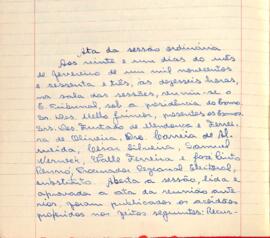 Ata da sessão ordinária
Aos vinte e um dias do mês
de fevereiro de um mil novecentos
e sessenta e três, às dezesseis horas,
na sala das sessões, reuniu-se o
E. Tribunal, sob a presidência do Exmo.
Sr. Des. Mello Júnior, presentes os Exmos.
Srs. Des. Furtado de Mendonça e Ferrei-
ra de Oliveira, Drs. Correia de Al-
meida, César Silveira, Samuel
Werneck, Valle Ferreira e José Pinto
Renno, Procurador Regional Eleitoral,
substituto. Aberta a sessão, lida e
aprovada a ata da reunião ante-
rior, foram publicados os acórdãos
proferidos nos feitos seguintes: Recur-